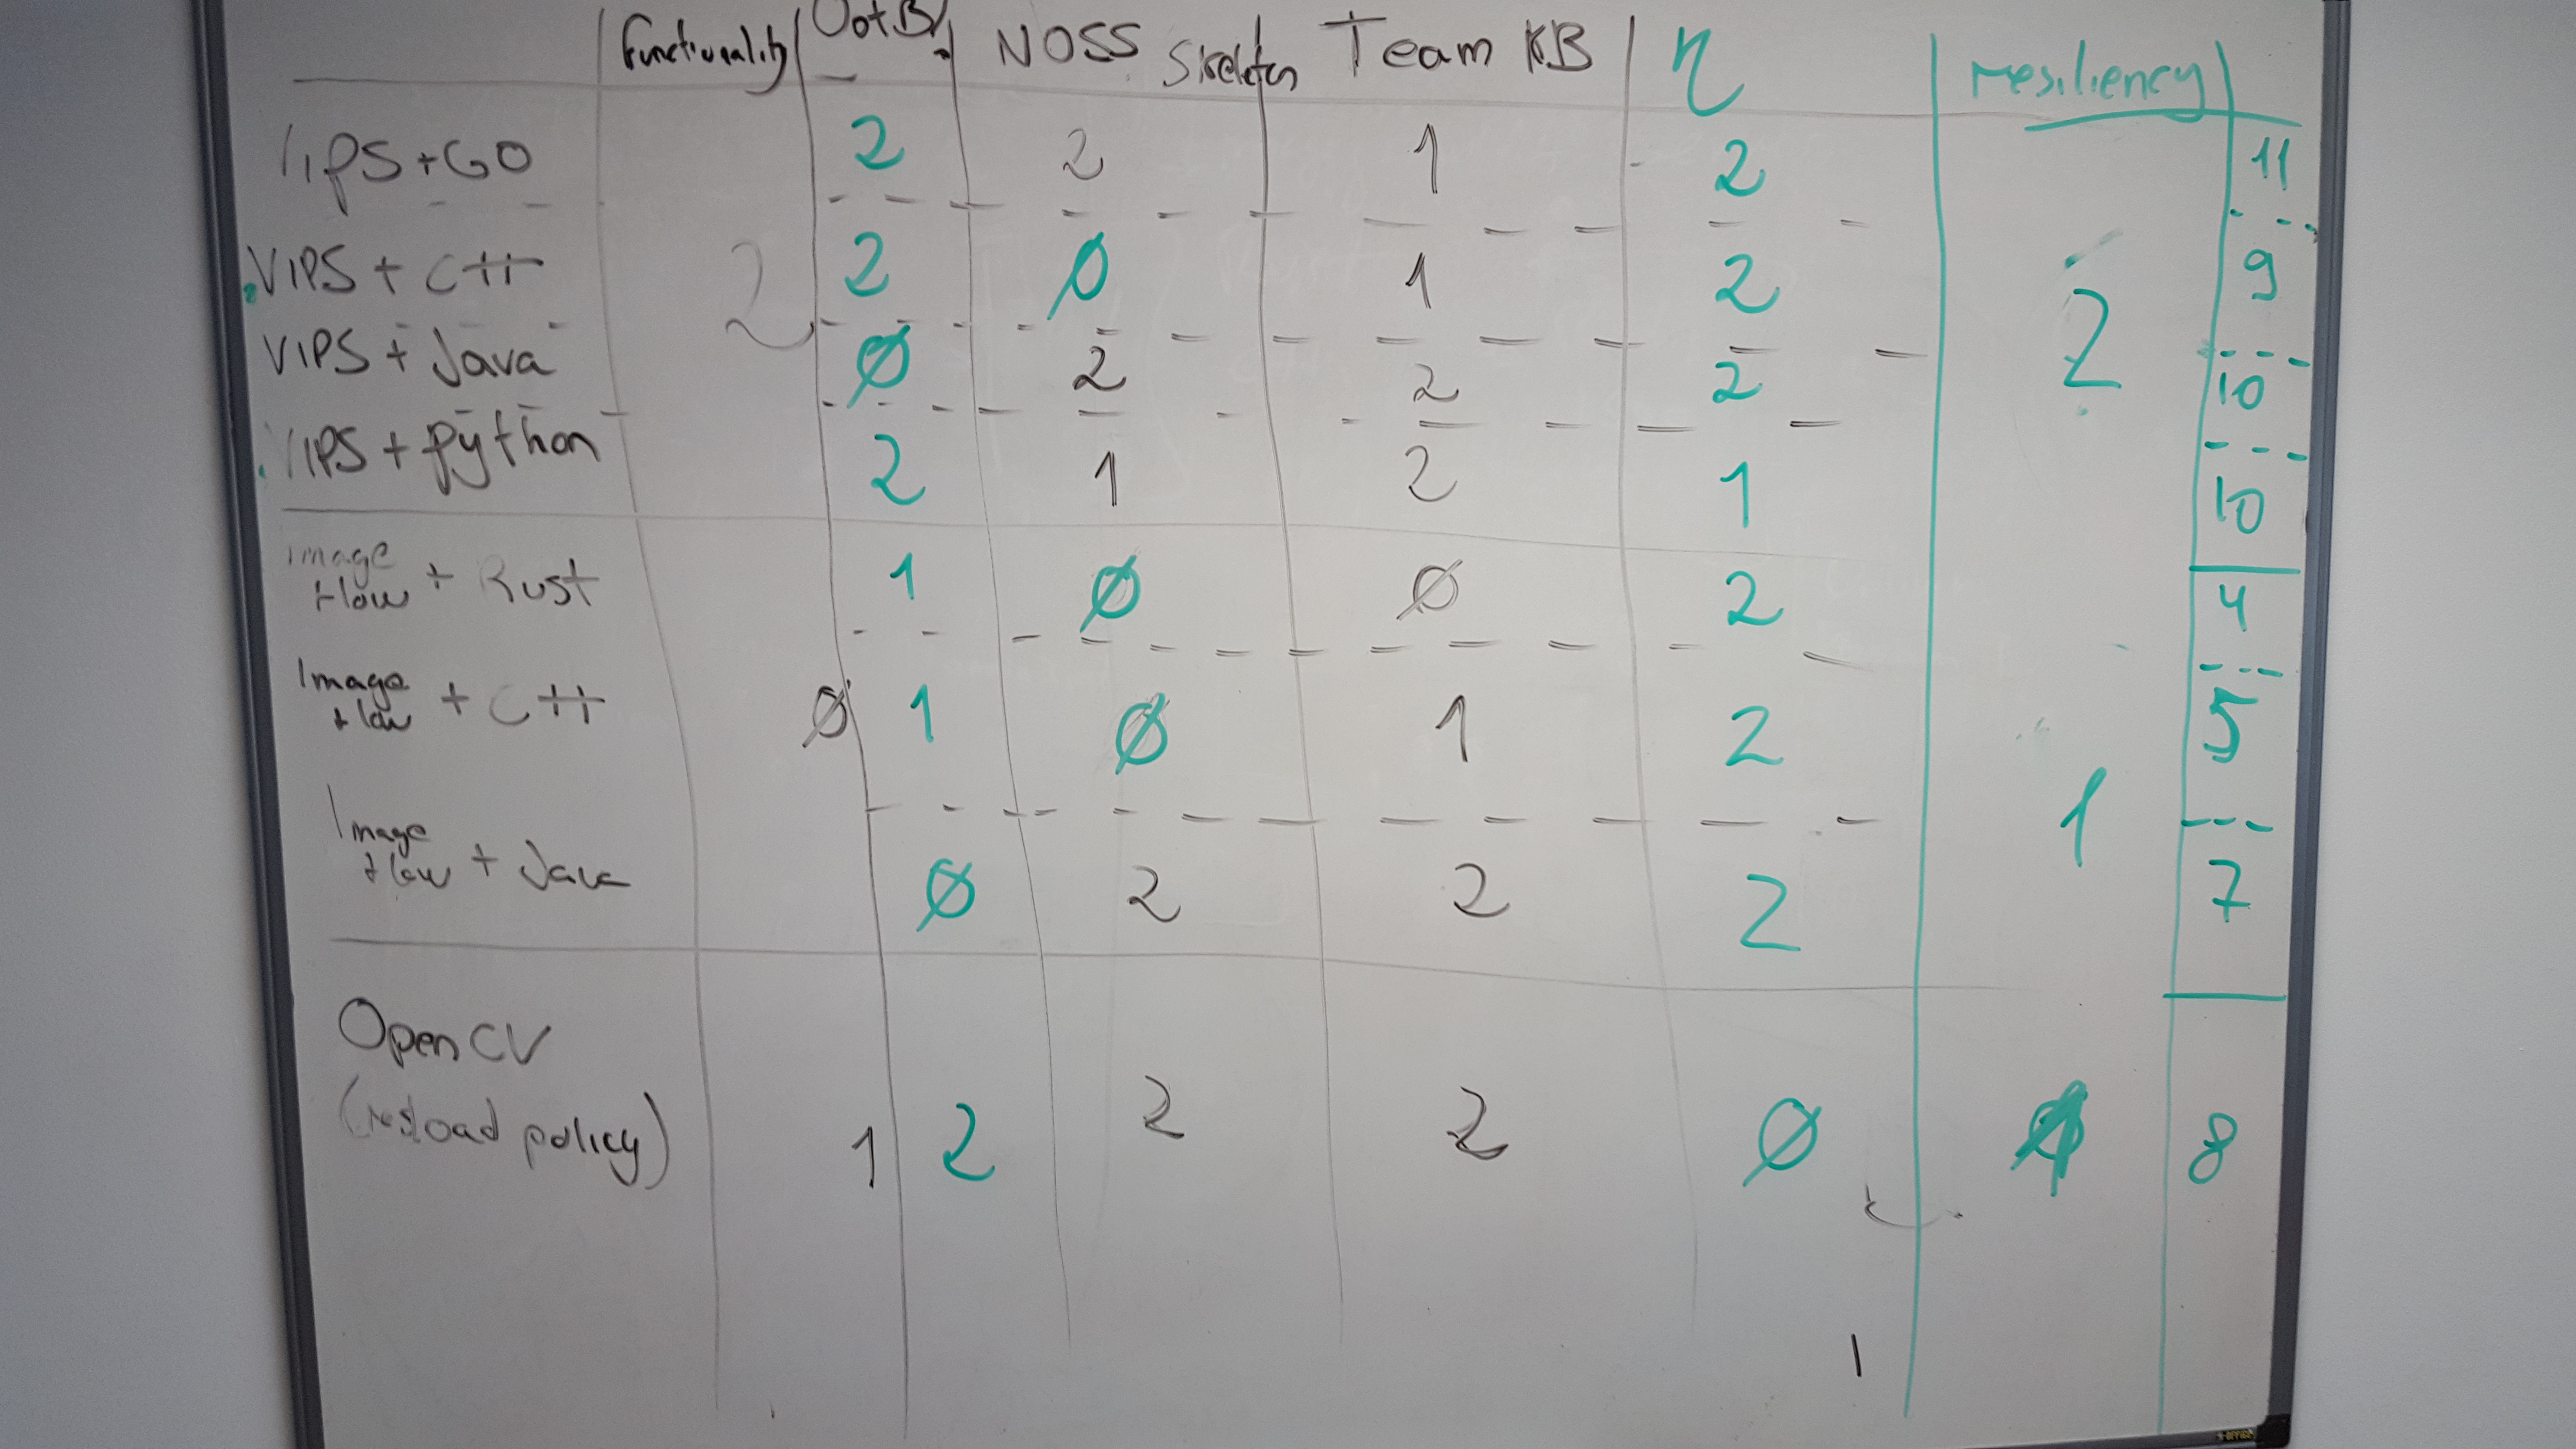 Functionality OotB NOSS Skeleton Team KB η resiliency
VIPS + GO 2 2 1 2 11
VIPS + C++ 2 Ø 1 2 9
2 2
VIPS + Java Ø 2 2 2 10
VIPS + Python 2 1 2 1 10
Image
flow + Rust 1 Ø Ø 2 4
Image
flow + C++ Ø 1 Ø 1 2 5
1
Image
flow + Java Ø 2 2 2 7
OpenCV
policy) 1 2 2 2 Ø 8